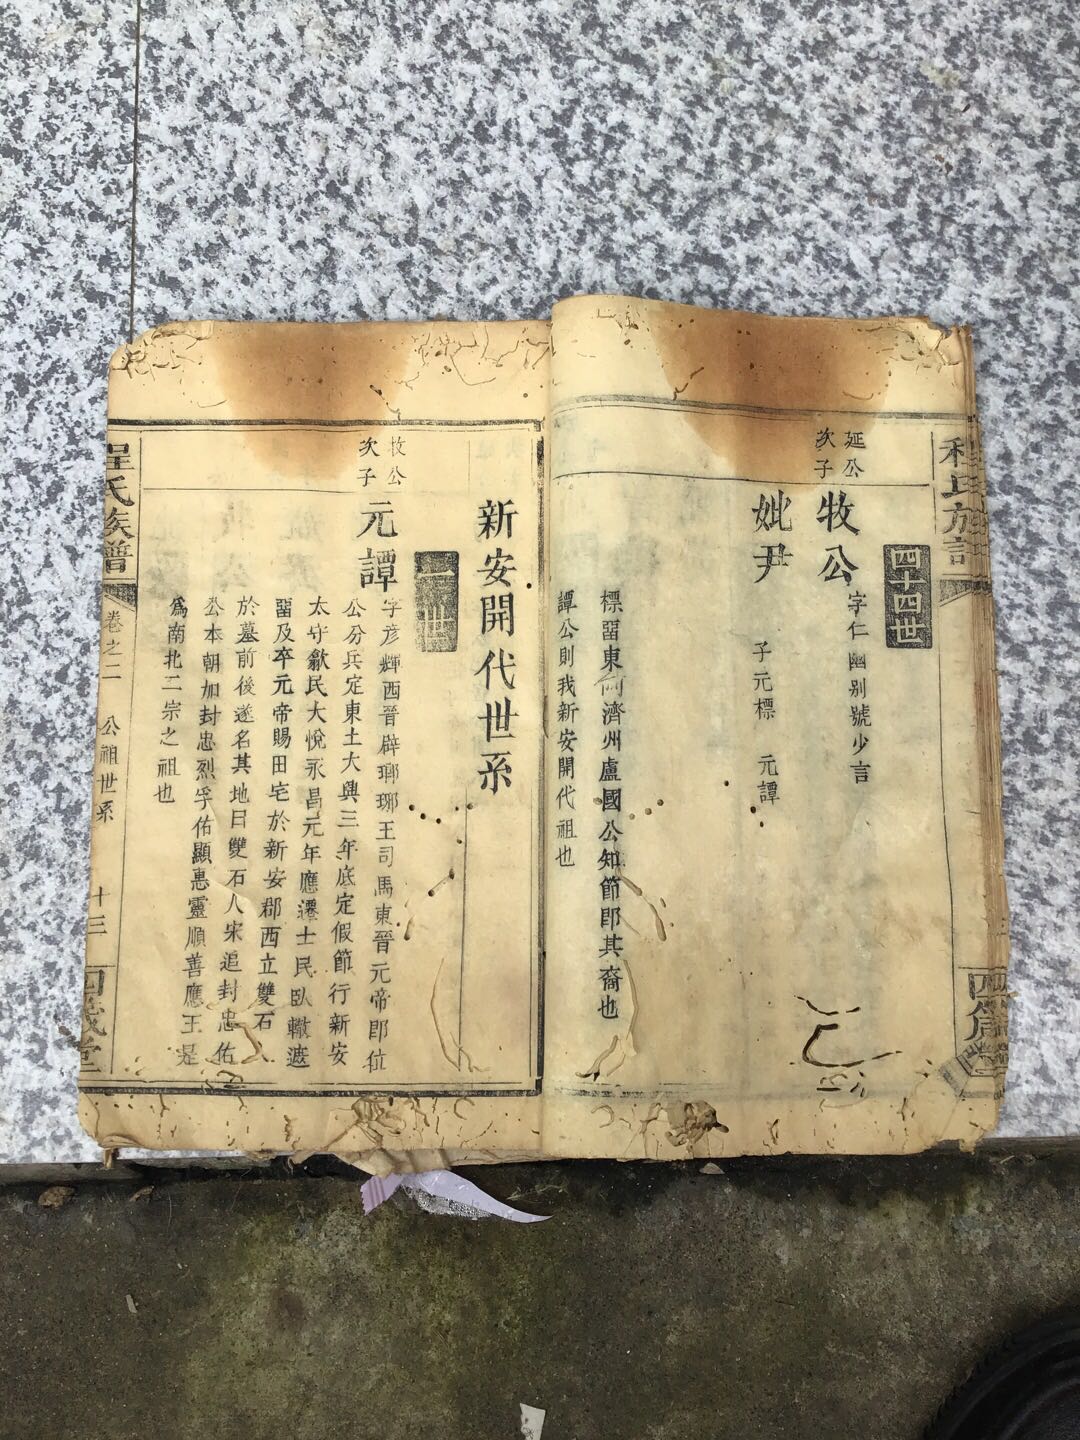 四十四世
延公
次子
牧公
字仁幽别號少言
妣尹
子元標 元譚
標畱東阿濟州盧國公知節卽其裔也
譚公則我新安開代祖也
新安開代世系
一世
牧公
次子
元譚
字彦輝西晉辟瑯琊王司馬東晉元帝卽位
公分兵定東土大興三年底定假節行新安
太守歙民大悅永昌元年應遷士民臥轍遮
畱及卒元帝賜田宅於新安郡西立雙石
於墓前後遂名其地曰雙石人宋追封忠佑
公本朝加封忠烈孚佑顯惠靈順善應王是
爲南北二宗之祖也
程氏族譜
卷之二
公祖世系
十三
四箴堂